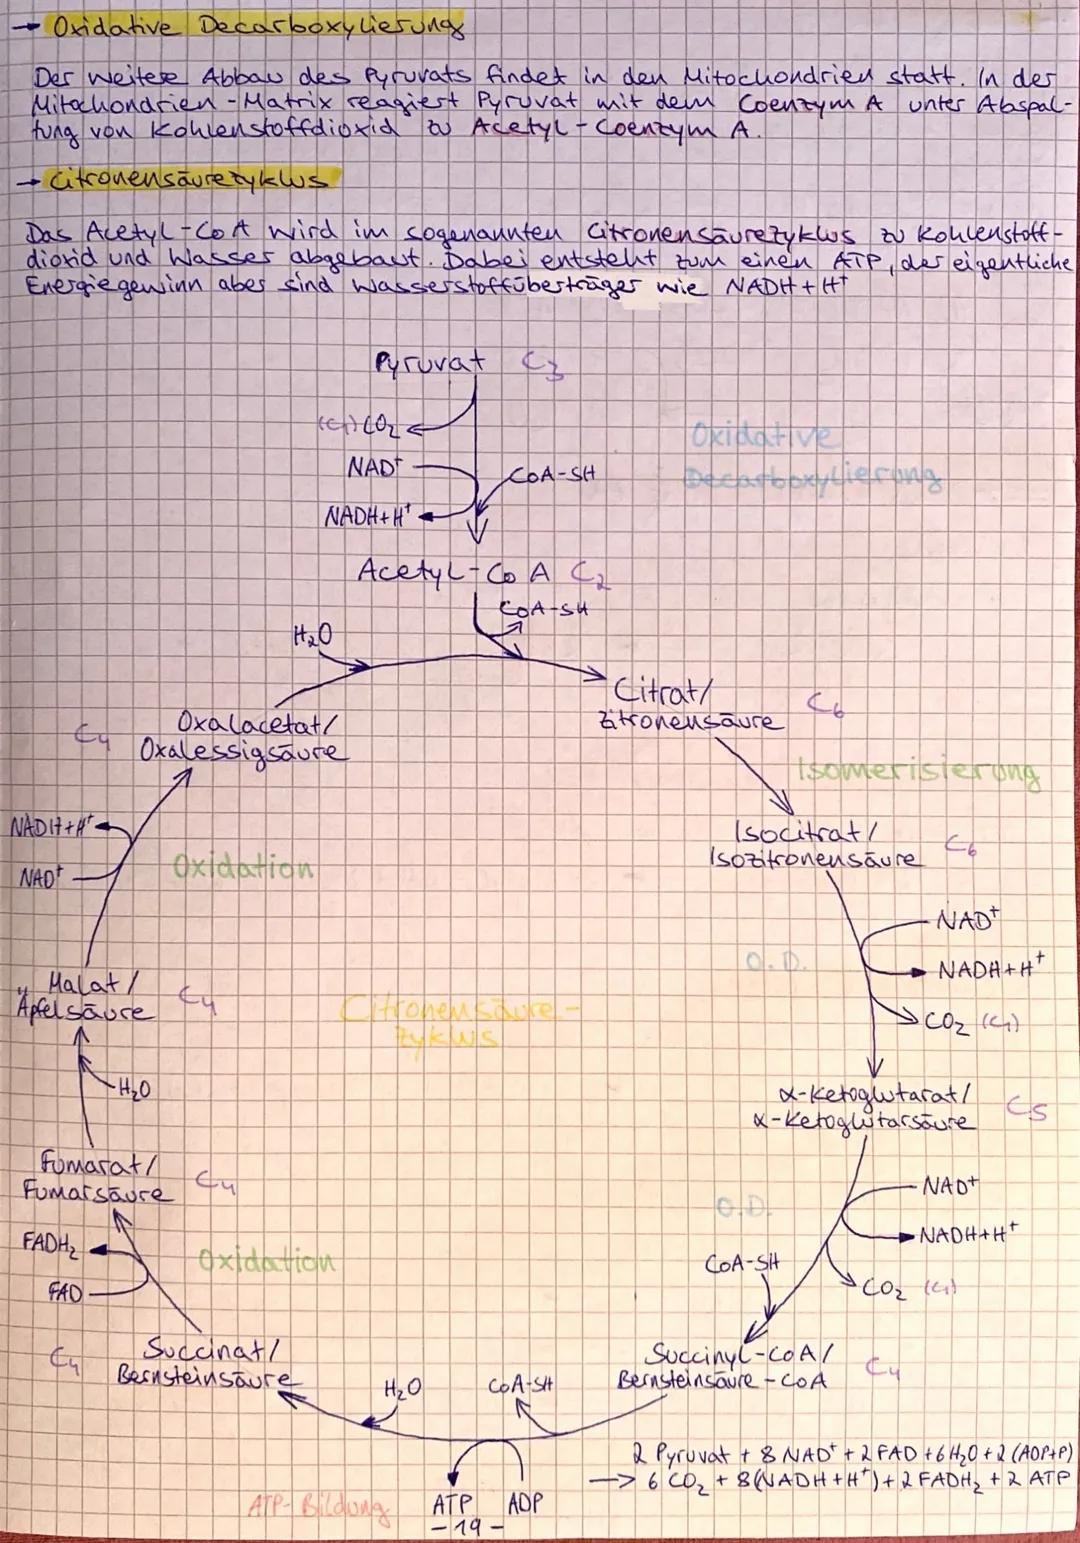 → Oxidative Decarboxylierung
Der weitere Abbau des Pyruvats findet in den Mitochondrien statt. In der
Mitochondrien-Matrix reagiert Pyruvat mit dem Coenzym A unter Abspal-
tung von Kohlenstoffdioxid zu Acetyl-Coenzym A.
→ Citronensäurezyklus
Das Acetyl-CoA wird im sogenannten Citronensäurezyklus zu Kohlenstoff-
dioxid und Wasser abgebaut. Dabei entsteht zum einen ATP, der eigentliche
Energiegewinn aber sind Wasserstoffüberträger wie NADH+H⁺
Pyruvat C₃
(C₁) CO₂
Oxidative
Decarboxylierung
NAD⁺
CoA-SH
NADH+H⁺
Acetyl-CoA C₂
CoA-SH
H₂O
Citrat/
Zitronensäure
C₆
C₄
Oxalacetat/
Oxalessigsäure
Isomerisierung
NADH+H⁺
NAD⁺
Oxidation
Isocitrat/
Isozitronensäure
C₆
NAD⁺
O.D.
NADH+H⁺
CO₂ (C₁)
Malat/
Äpfelsäure
C₄
Citronensäure-
zyklus
H₂O
α-Ketoglutarat/
α-Ketoglutarsäure
C₅
Fumarat/
Fumarsäure
C₄
NAD⁺
O.D.
NADH+H⁺
FADH₂
FAD
Oxidation
CoA-SH
CO₂ (C₁)
C₄
Succinat/
Bernsteinsäure
H₂O
CoA-SH
Succinyl-CoA/
Bernsteinsäure-CoA
C₄
2 Pyruvat + 8 NAD⁺ + 2 FAD + 6 H₂O + 2 (ADP+P)
→ 6 CO₂ + 8(NADH+H⁺) + 2 FADH₂ + 2 ATP
ATP-Bildung
ATP ADP
- 19 -